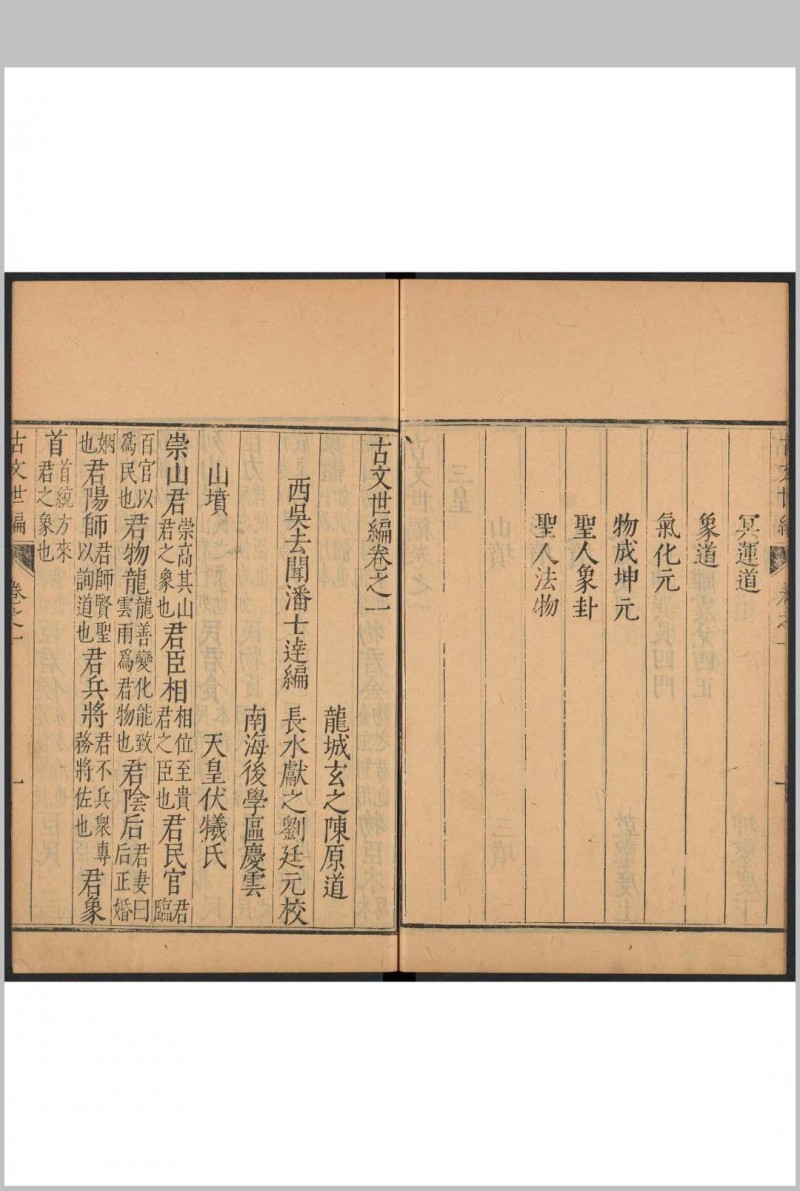 古文世編 卷之一
冥運道
象道
氣化元
物成坤元
聖人象卦
聖人法物
古文世編卷之一
龍城玄之陳原道
西吳去聞潘士達編 長水獻之劉廷元校
南海後學區慶雲
山墳 天皇伏犧氏
崇山君崇高其山君之象也君臣相相位至貴君之臣也君民官君臨
百官以爲民也君物龍龍善變化能致雲雨爲君物也君陰后君妻曰后正婚
姻也君陽師君師賢聖以詢道也君兵將君不兵衆專務將佐也君象
首首統方來君之象也
古文世編 卷之一 一